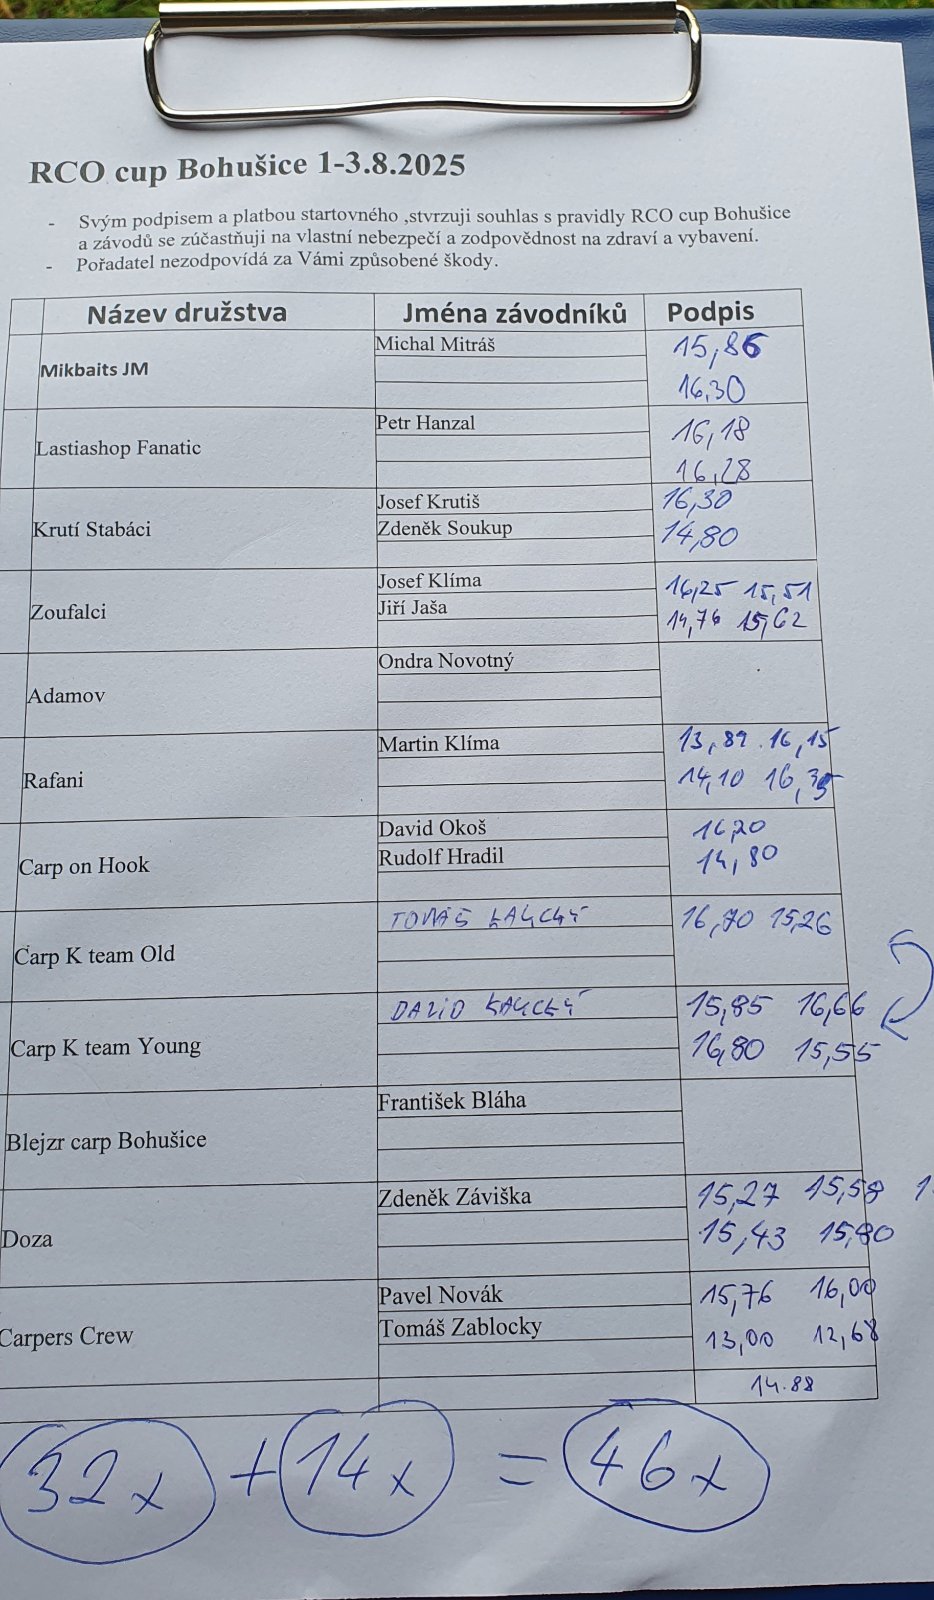 RCO cup Bohušice 1-3.8.2025
- Svým podpisem a platbou startovného ,stvrzuji souhlas s pravidly RCO cup Bohušice
a závodů se zúčastňuji na vlastní nebezpečí a zodpovědnost na zdraví a vybavení.
- Pořadatel nezodpovídá za Vámi způsobené škody.
Název družstva Jména závodníků Podpis
Michal Mitráš 15,86
Mikbaits JM
16,30
Petr Hanzal 16,18
Lastiashop Fanatic
16,28
Josef Krutiš 16,30
Krutí Stabáci Zdeněk Soukup 14,80
Josef Klíma 16,25 15,51
Zoufalci Jiří Jaša 14,76 15,62
Ondra Novotný
Adamov
Martin Klíma 13,89 16,15
Rafani 14,10 16,35
David Okoš 16,20
Carp on Hook Rudolf Hradil 14,80
TOMÁŠ KAUCKÝ 16,70 15,26
Carp K team Old
DAVID KAUCKÝ 15,85 16,66
Carp K team Young 16,80 15,55
František Bláha
Blejzr carp Bohušice
Zdeněk Záviška 15,27 15,58
Doza 15,43 15,80
Pavel Novák 15,76 16,00
Carpers Crew Tomáš Zablocky 13,00 12,68
14.88
32x + 14x = 46x